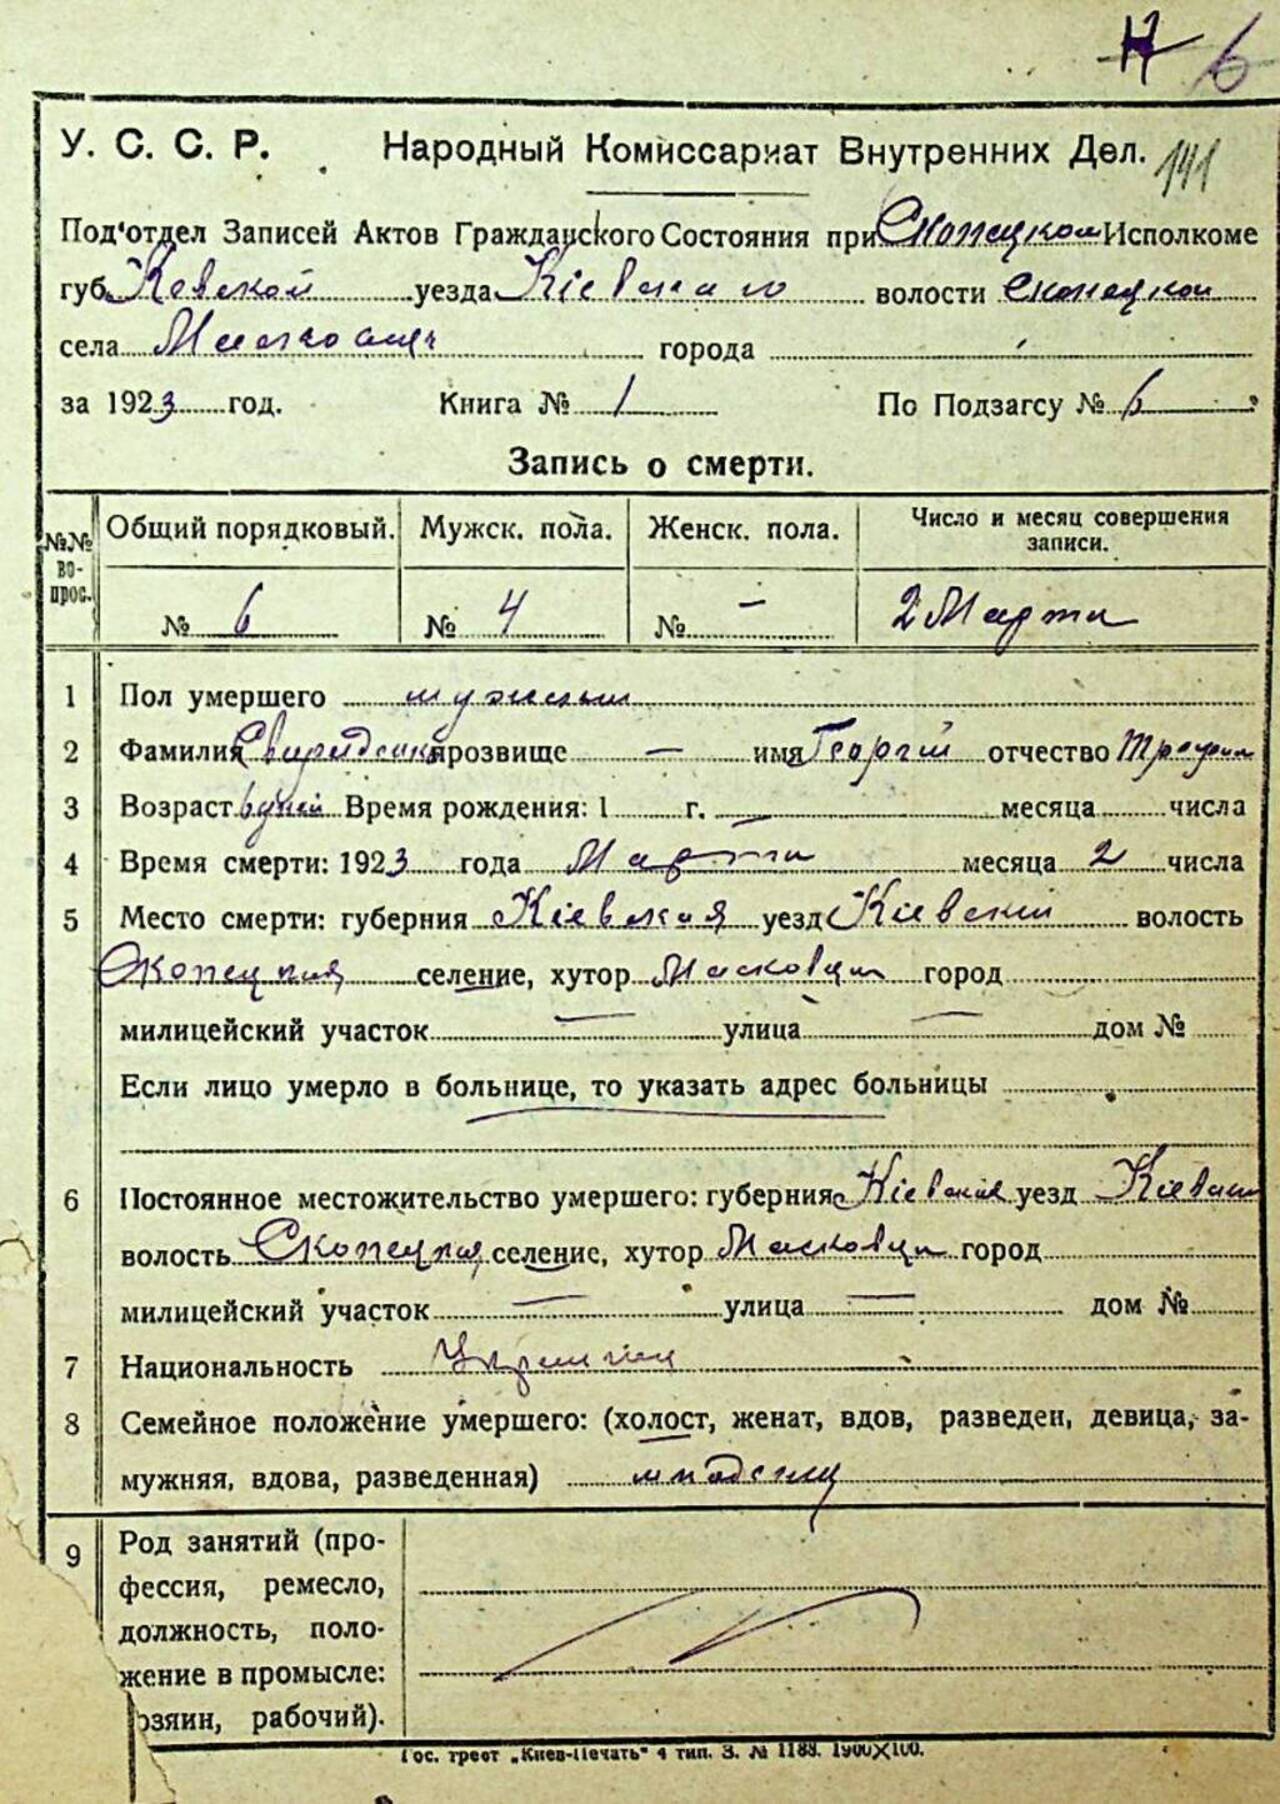 6
У. С. С. Р. Народный Комиссариат Внутренних Дел. 141
Под‘отдел Записей Актов Гражданского Состояния при Скопецком Исполкоме
губ. Кевской уезда Кіевскаго волости Скопецкой
села города
за 1923 год. Книга № 1 По Подзагсу № 6
Запись о смерти.
№№ вопрос. Общий порядковый. Мужск. пола. Женск. пола. Число и месяц совершения записи.
№ 6 № 4 № – 2 Марта
1 Пол умершего
2 Фамилия прозвище — имя Георгій отчество
3 Возраст 6 дней Время рождения: 1 г. — месяца числа
4 Время смерти: 1923 года Марта месяца 2 числа
5 Место смерти: губерния Кіевская уезд Кіевскій волость
Скопецкая селение, хутор Масковци город
милицейский участок — улица — дом №
Если лицо умерло в больнице, то указать адрес больницы
6 Постоянное местожительство умершего: губерния Кіевская уезд
волость Скопецкая селение, хутор Масковци город
милицейский участок — улица — дом №
7 Национальность
8 Семейное положение умершего: (холост, женат, вдов, разведен, девица, за-
мужняя, вдова, разведенная) младенец
9 Род занятий (про-
фессия, ремесло,
должность, поло-
жение в промысле:
озяин, рабочий).
Гос. трест „Киев-Печать“ 4 тип. З. № 1188. 1900×100.